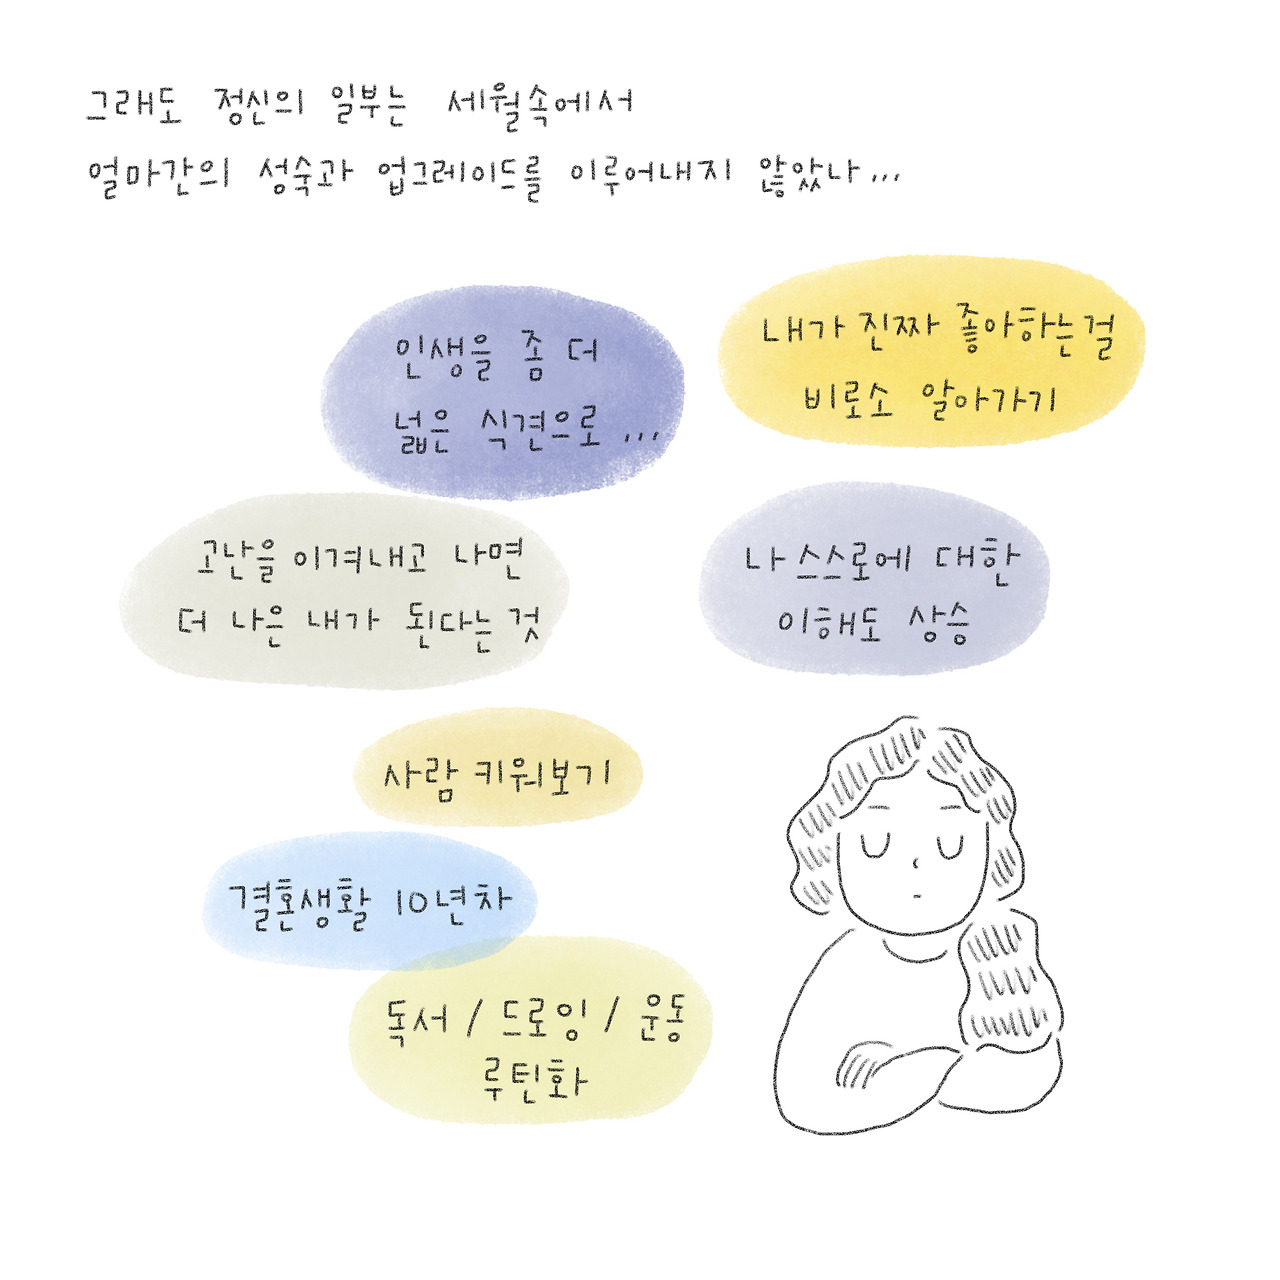 그래도 정신의 일부는 세월속에서
얼마간의 성숙과 업그레이드를 이루어내지 않았나...
인생을 좀 더
넓은 식견으로 ...
내가 진짜 좋아하는걸
비로소 알아가기
고난을 이겨내고 나면
더 나은 내가 된다는 것
나 스스로에 대한
이해도 상승
사람 키워보기
결혼생활 10년차
독서 / 드로잉 / 운동
루틴화